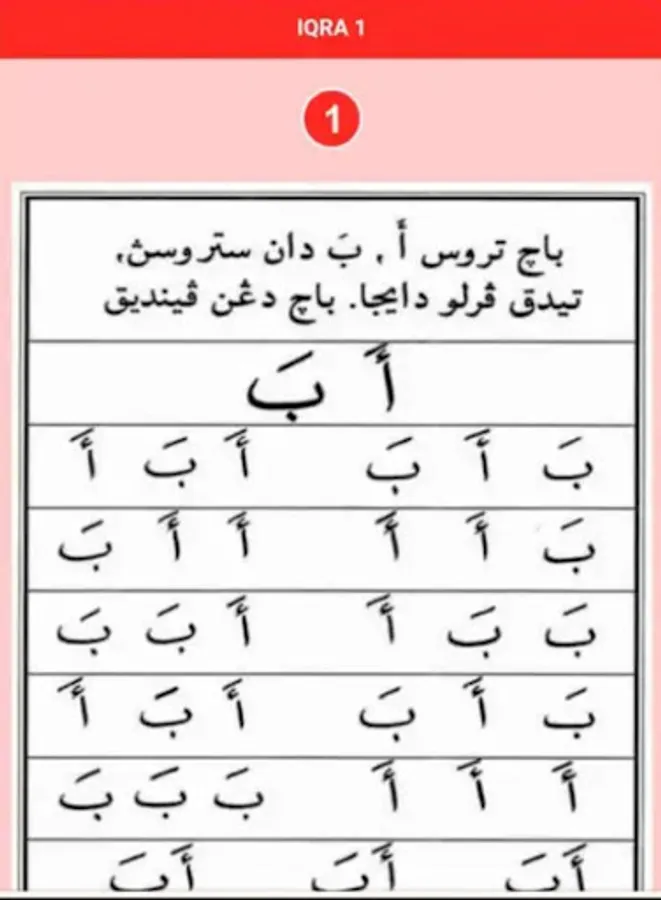 IQRA 1
1
باچ تروس أَ , بَ دان ستروسڽ,
تيدق ڤرلو دايجا. باچ دڠن ڤينديق
أَ بَ
بَ أَ بَ أَ بَ أَ
بَ أَ أَ أَ أَ بَ
بَ بَ أَ أَ بَ بَ
بَ أَ بَ أَ بَ أَ
أَ أَ أَ بَ بَ بَ
أَبَ أَبَ أَبَ